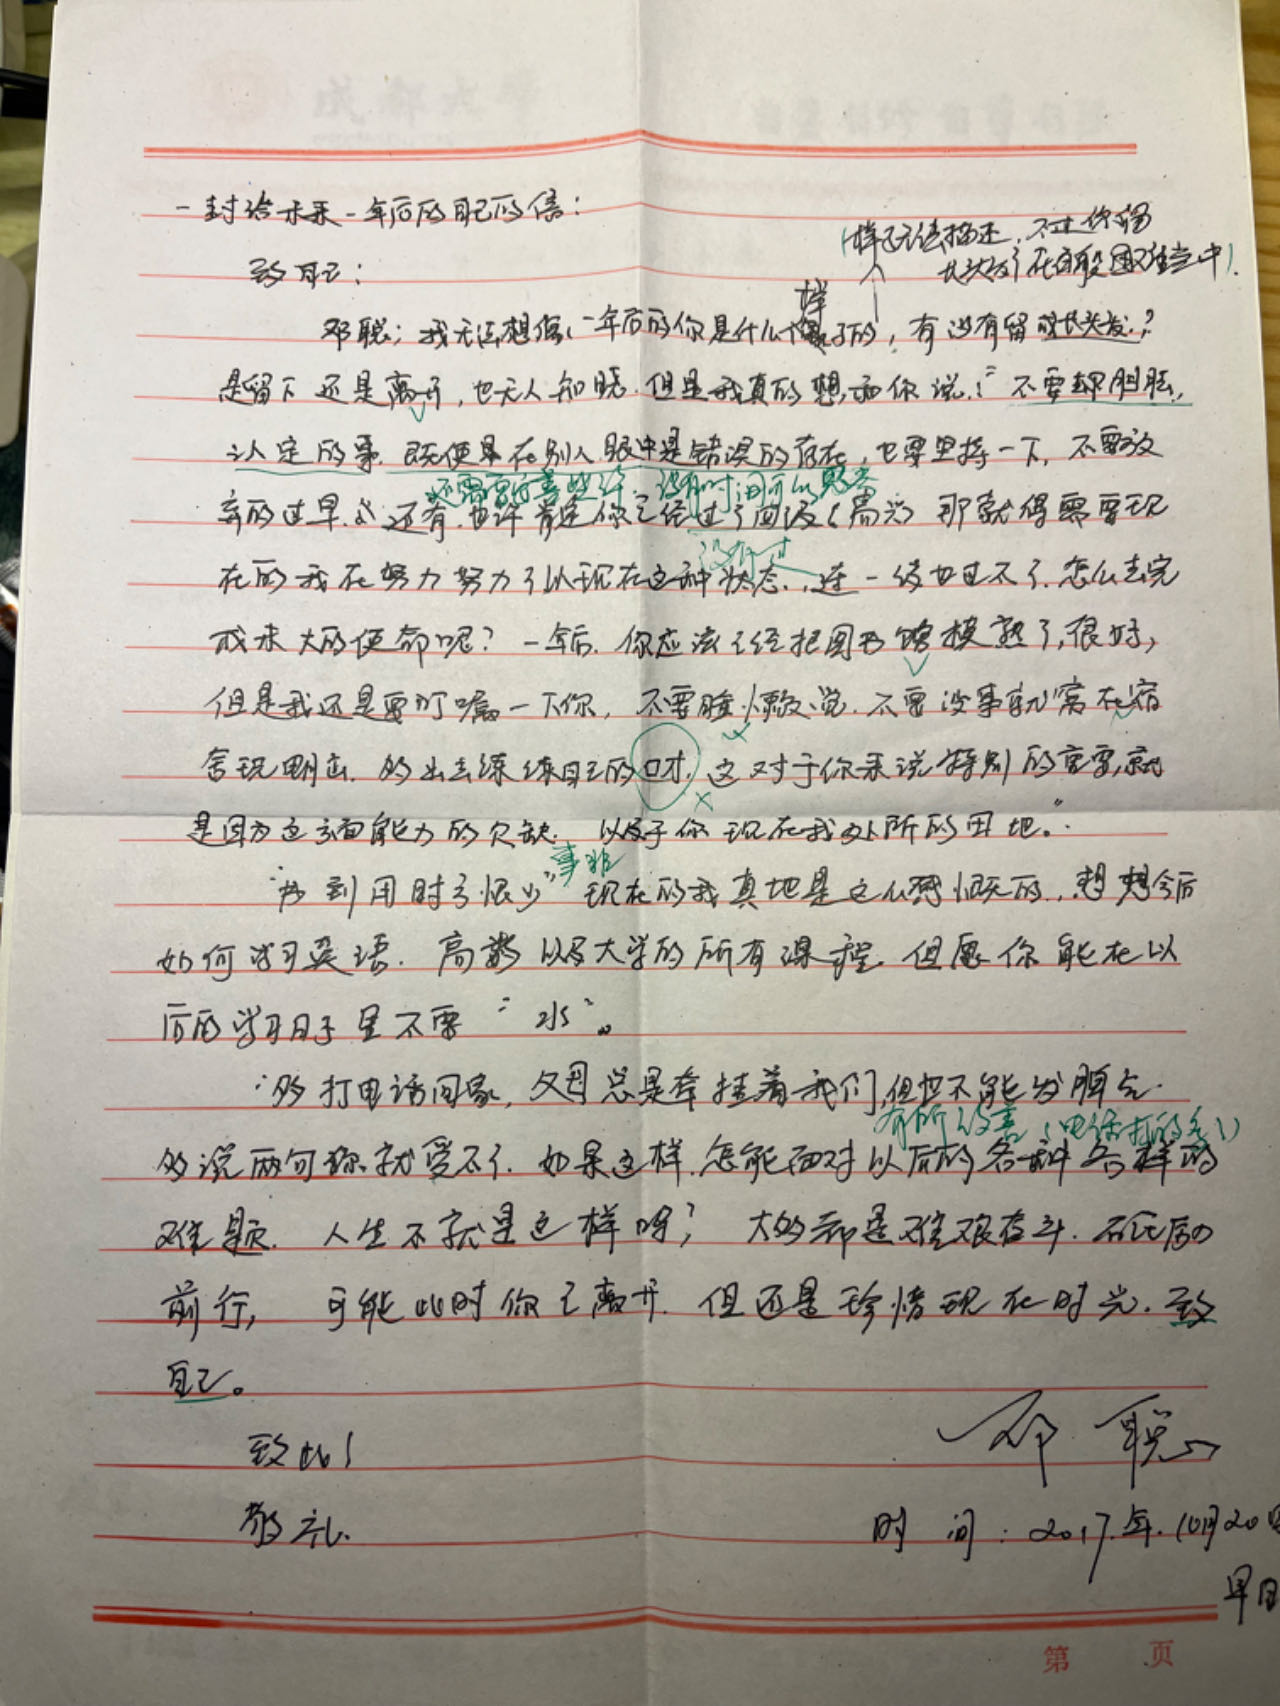 一封给未来一年后的自己的信：
样子无法描述，不过你留
长头发了在
致自己：
样
邓聪：我无法想像，一年后的你是什么子的，有没有留成长头发？
是留下还是离开，也无人知晓．但是我真的想和你说：“不要胆怯，
认定的事．既便是在别人眼中是错误的存在，也要坚持一下，不要放
还需要 没有时间可以
弃的过早．还有．也许肯定你已经过了四级（高兴）那就得需要现
没有过
在的我在努力努力了以现在这种状态．，连一级也过不了．怎么去完
成未大的使命呢？一年后．你应该已经把图书馆摸熟了，很好，
但是我还是要叮嘱一下你，不要睡懒觉．不要没事就窝在宿
舍玩电脑．多出去练练自己的口才．这对于你来说特别的重要，就
是因为这方面能力的欠缺．以及于你现在我处所的困地。”
事非
“书到用时方恨少”现在的我真地是这么感恨无的．，想想今后
如何学习英语．高数以及大学的所有课程．但愿你能在以
后的学习日子里不要“水”。
“多打电话回家，父母总是牵挂着我们，但也不能发脾气．
有所改善（电话打的多！）
多说两句你就受不了．如果这样．怎能面对以后的各种各样的
难题．人生不就是这样嘛；大多都是艰难奋斗．
前行，可能此时你已离开．但还是珍惜现在时光．致
自己。
致此！
邓聪
敬礼．
时间：2017.年.10月20
早自
第 页